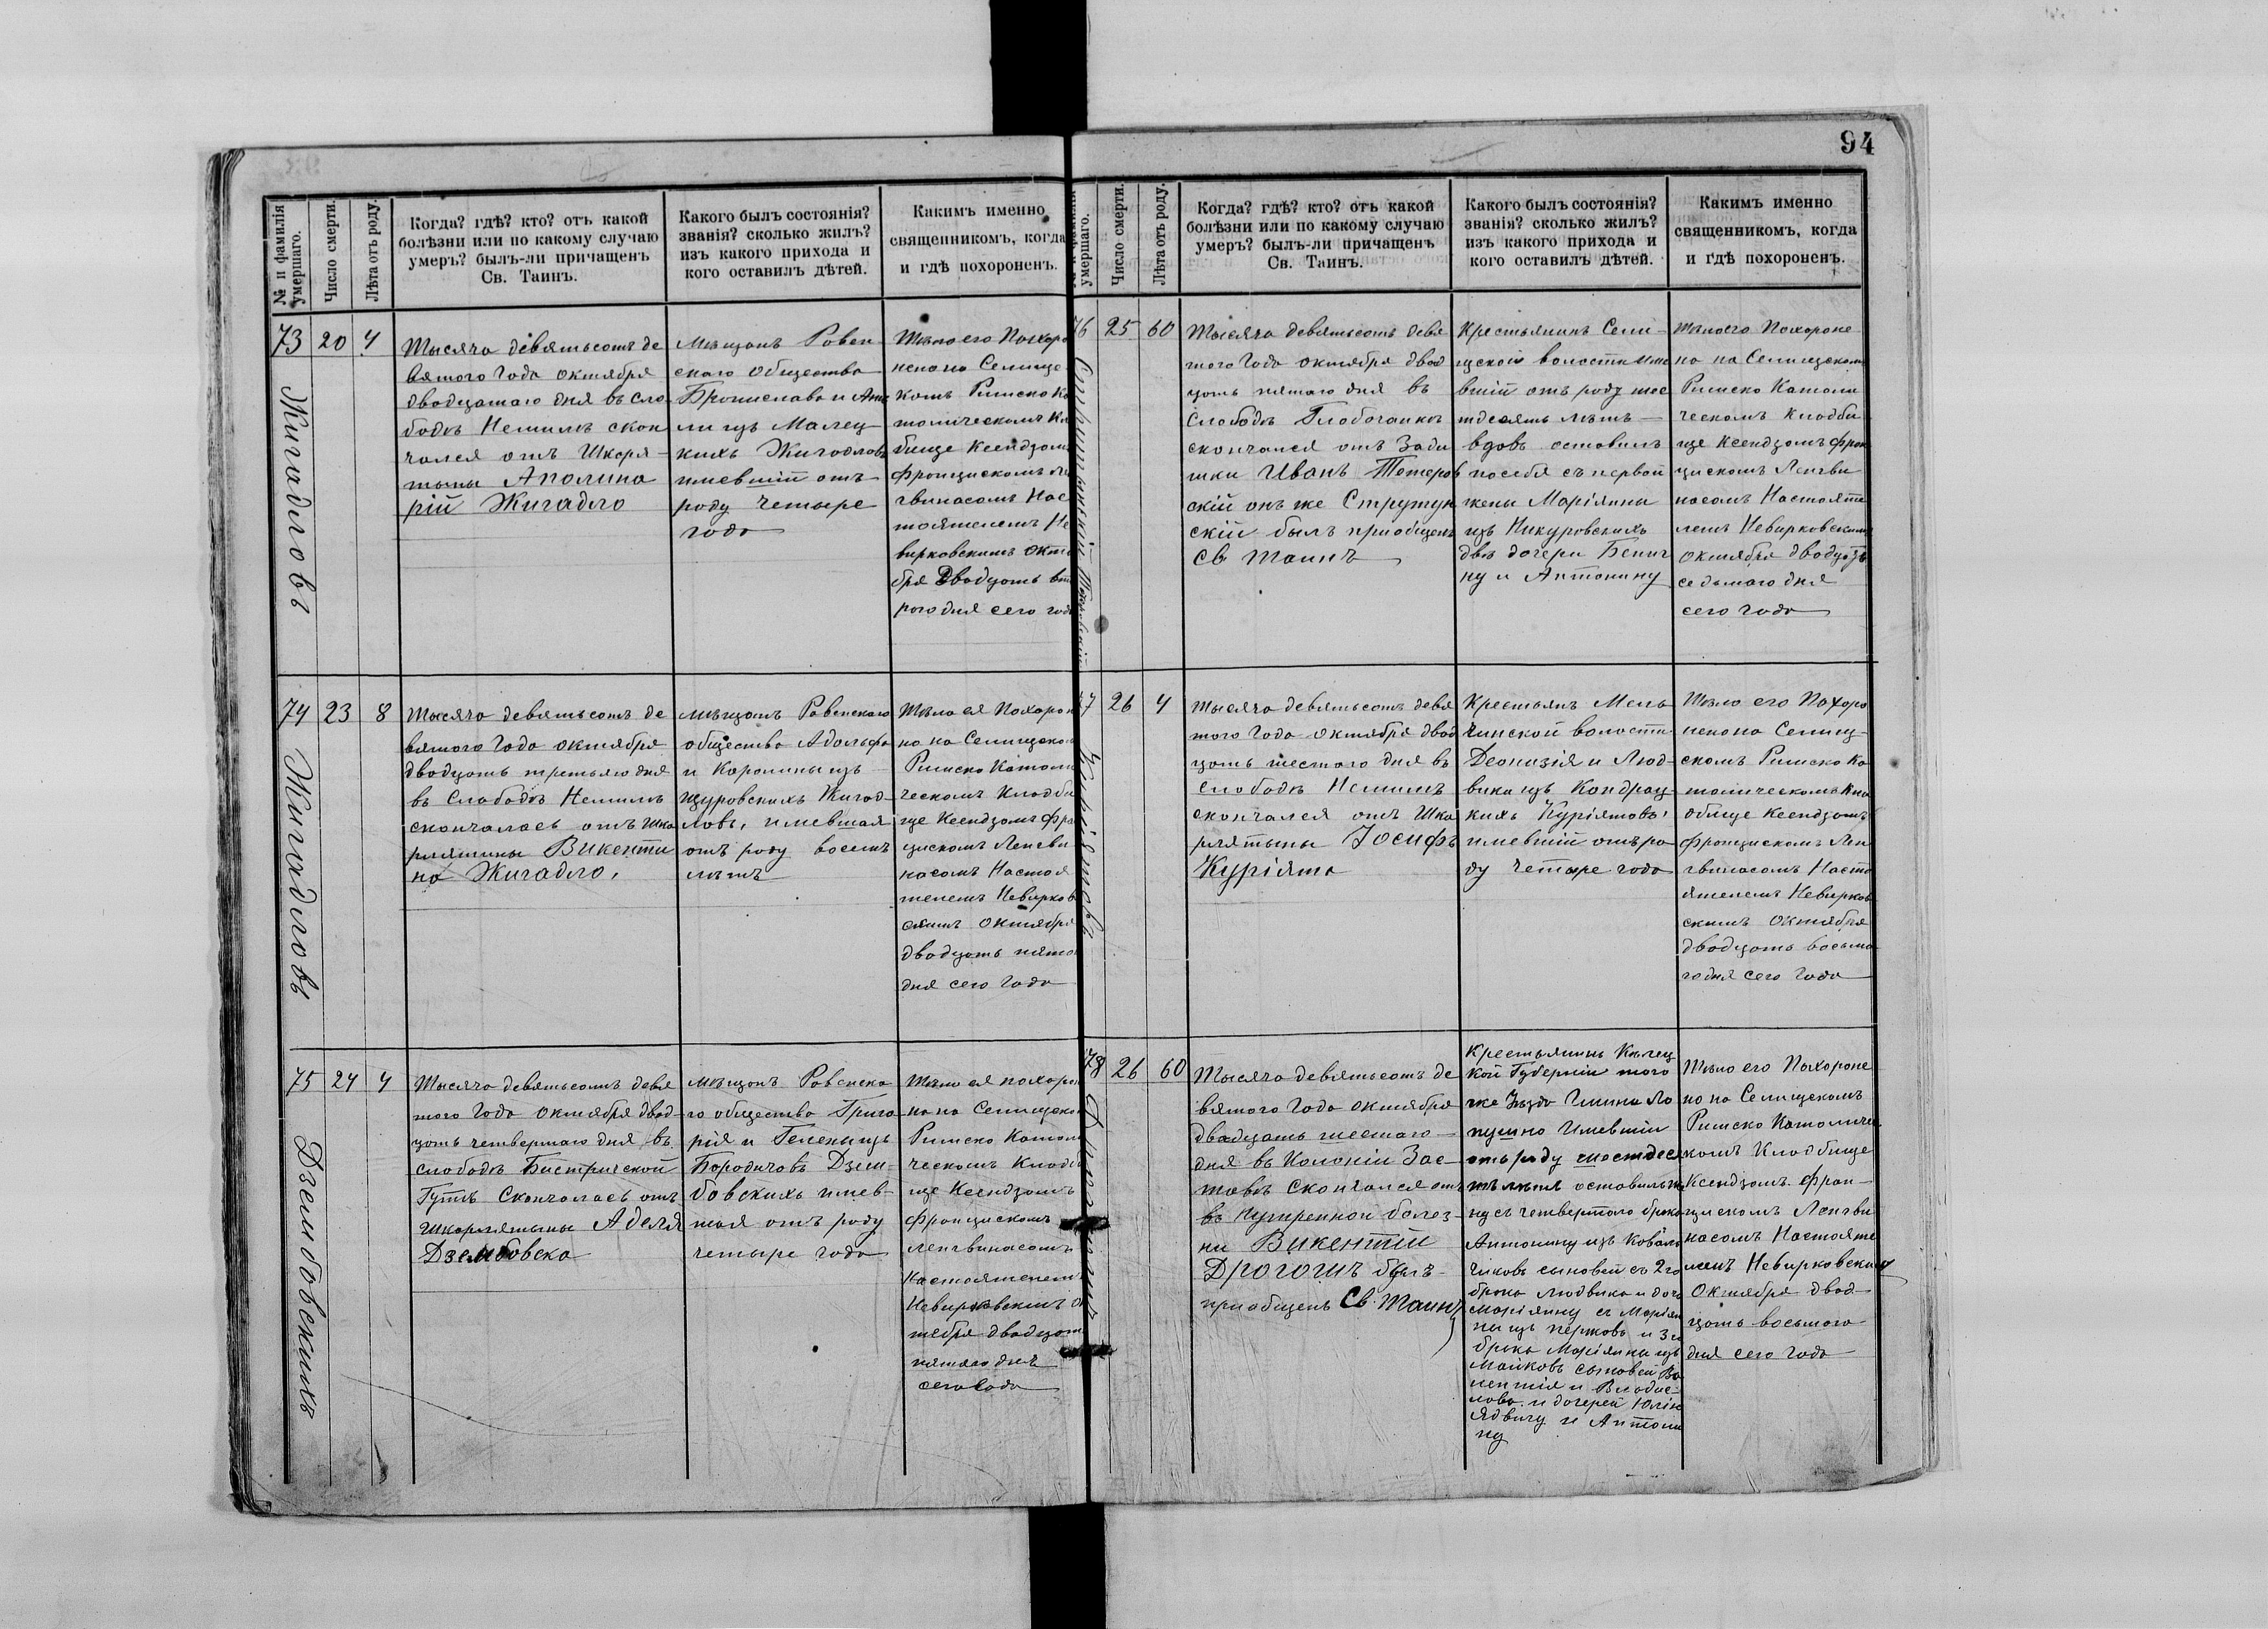 94
№ и фамилія
умершаго.
Число смерти.
Лѣта отъ роду.
Когда? гдѣ? кто? отъ какой
болѣзни или по какому случаю
умеръ? былъ-ли причащенъ
Св. Таинъ.
Какого былъ состоянія?
званія? сколько жилъ?
изъ какого прихода и
кого оставилъ дѣтей.
Какимъ именно
священникомъ, когда
и гдѣ похороненъ.
73
20
4
Жигадловъ
Тысяча девятьсотъ де
вятого Года октября
двадцатаго дня въ сло
бодѣ Немилѣ скон
чался отъ Шкарля-
тыны Аполина
рій Жигадло
Мѣщанъ Ровен
скаго Общества
Бронислава и Анε
ли изъ Малец
кихъ Жигадловъ
имевшій отъ
роду четыре
года
Тѣло его Похоро
нено на Селище
комъ Римско Ка
толическомъ Кла
бище Ксендзомъ
Францискомъ Ле
гвинасомъ Нас
тоятелемъ Не
вирковскимъ октя
бря двадцать вто
рого дня сего года
74
23
8
Жигадловъ
Тысяча девятьсотъ де
вятого Года октября
двадцать третьяго дня
въ Слободѣ Немилѣ
скончалась отъ шка
рлятины Викенти
на Жигадло,
мѣщанъ Ровенскаго
общества Адольфа
и Каролины изъ
Щуровскихъ Жигад-
ловъ, имевшая
отъ роду восемь
лѣтъ
Тѣло ея Похорон
но на Селищеком
Римско Католи
ческомъ Кладби
ще Ксендзомъ Фра
цискомъ Ленгви
насомъ Настоя
телемъ Невирков
скимъ Октября
двадцать пятого
дня сего Года
75
24
4
Дзембовскихъ
Тысяча девятьсотъ девя
того Года октября двад-
цать четвертаго дня въ
слободѣ Бистрической
Гутѣ Скончалась отъ
шкарлятыны Аделя
Дзембовска
мѣщанъ Ровенска
го общества Григо
рія и Гелены изъ
Бородичовъ Дзем-
бовскихъ имев-
шая отъ роду
четыре года
Тѣло ея похорон
но на Селищеком
Римско Католи
ческомъ Кладб
ще Ксендзомъ
Францискомъ
Ленгвинасомъ
Настоятелемъ
Невирковскимъ ок
тебря двадцать
пятаго дня
сего года
умершаго.
Число смерти.
Лѣта отъ роду.
Когда? гдѣ? кто? отъ какой
болѣзни или по какому случаю
умеръ? былъ-ли причащенъ
Св. Таинъ.
Какого былъ состоянія?
званія? сколько жилъ?
изъ какого прихода и
кого оставилъ дѣтей.
Какимъ именно
священникомъ, когда
и гдѣ похороненъ.
76
25
60
Тысяча девятьсотъ девя
того Года октября двад
цать пятаго дня въ
Слободѣ Глобочанкѣ
скончался отъ Зади
шки Иванъ
скій онъ же Струтун
скій былъ приобщенъ
Св Таинъ
Крестьянинъ Сели-
щской волости име
вшій отъ роду шес
тдесять лѣтъ
вдовъ оставилъ
посебя съ первой
жены Маріянны
изъ Никуровскихъ
двѣ дочери Бенин
ну и Антонину
Тѣло его Похороне
но на Селищском
Римско Католи
ческомъ Кладби
ще Ксендзомъ Фран
цискомъ Ленгви
насомъ Настояти
лемъ Невирковским
октября двадцать
седьмого дня
сего года
77
26
4
Куріятовъ
Тысяча девятьсотъ девя
того Года октября двад
цать шестого дня въ
слободѣ Немилѣ
скончался отъ Шка
рлятыны Іосифъ
Курiята
Крестьянъ Мель
чинской волости
Деонизія и Люд-
вики изъ Кондрац
кихъ Куріятовъ,
имевшій отъ ро
ду четыре года
Тѣло его Похоро
нено на Селищ-
скомъ Римско Ка
толическомъ Кла
дбище Ксендзомъ
Францискомъ Лен
гвинасомъ Насто
ятелемъ Невирков
скимъ Октября
двадцать восьмо
го дня сего года
78
26
60
Тысяча девятьсотъ де
вятого Года октября
двадцать шестаго
дня въ Колоніи Зас-
тавѣ скончался отъ
внутренной болез-
ни Викентій
Дрогошъ былъ
приобщенъ Св. Таинъ
Крестьянинъ Кѣлец
кой Губерніи того
же Уѣзда Гмины Ло
пушно Имевшій
отъ роду шестдес
ть лѣтъ оставилъ же
ну съ четвертого брака
Антонину изъ Коваль
чиковъ сыновей съ 2го
брака Людвика и доч
Маріянну съ Маріян
ны изъ и 3го
брака Маріянны изъ
Майковъ сыновей Ва
лентія и Владис-
лава и дочерей Юлію
Ядвигу и Антони
ну
Тѣло его Похороне
но на Селищскомъ
Римско Католиче
комъ Кладбище
Ксендзомъ Фран-
цискомъ Ленгви
насомъ Настояте
лемъ Невирковским
Октября двад-
цать восьмого
дня сего Года